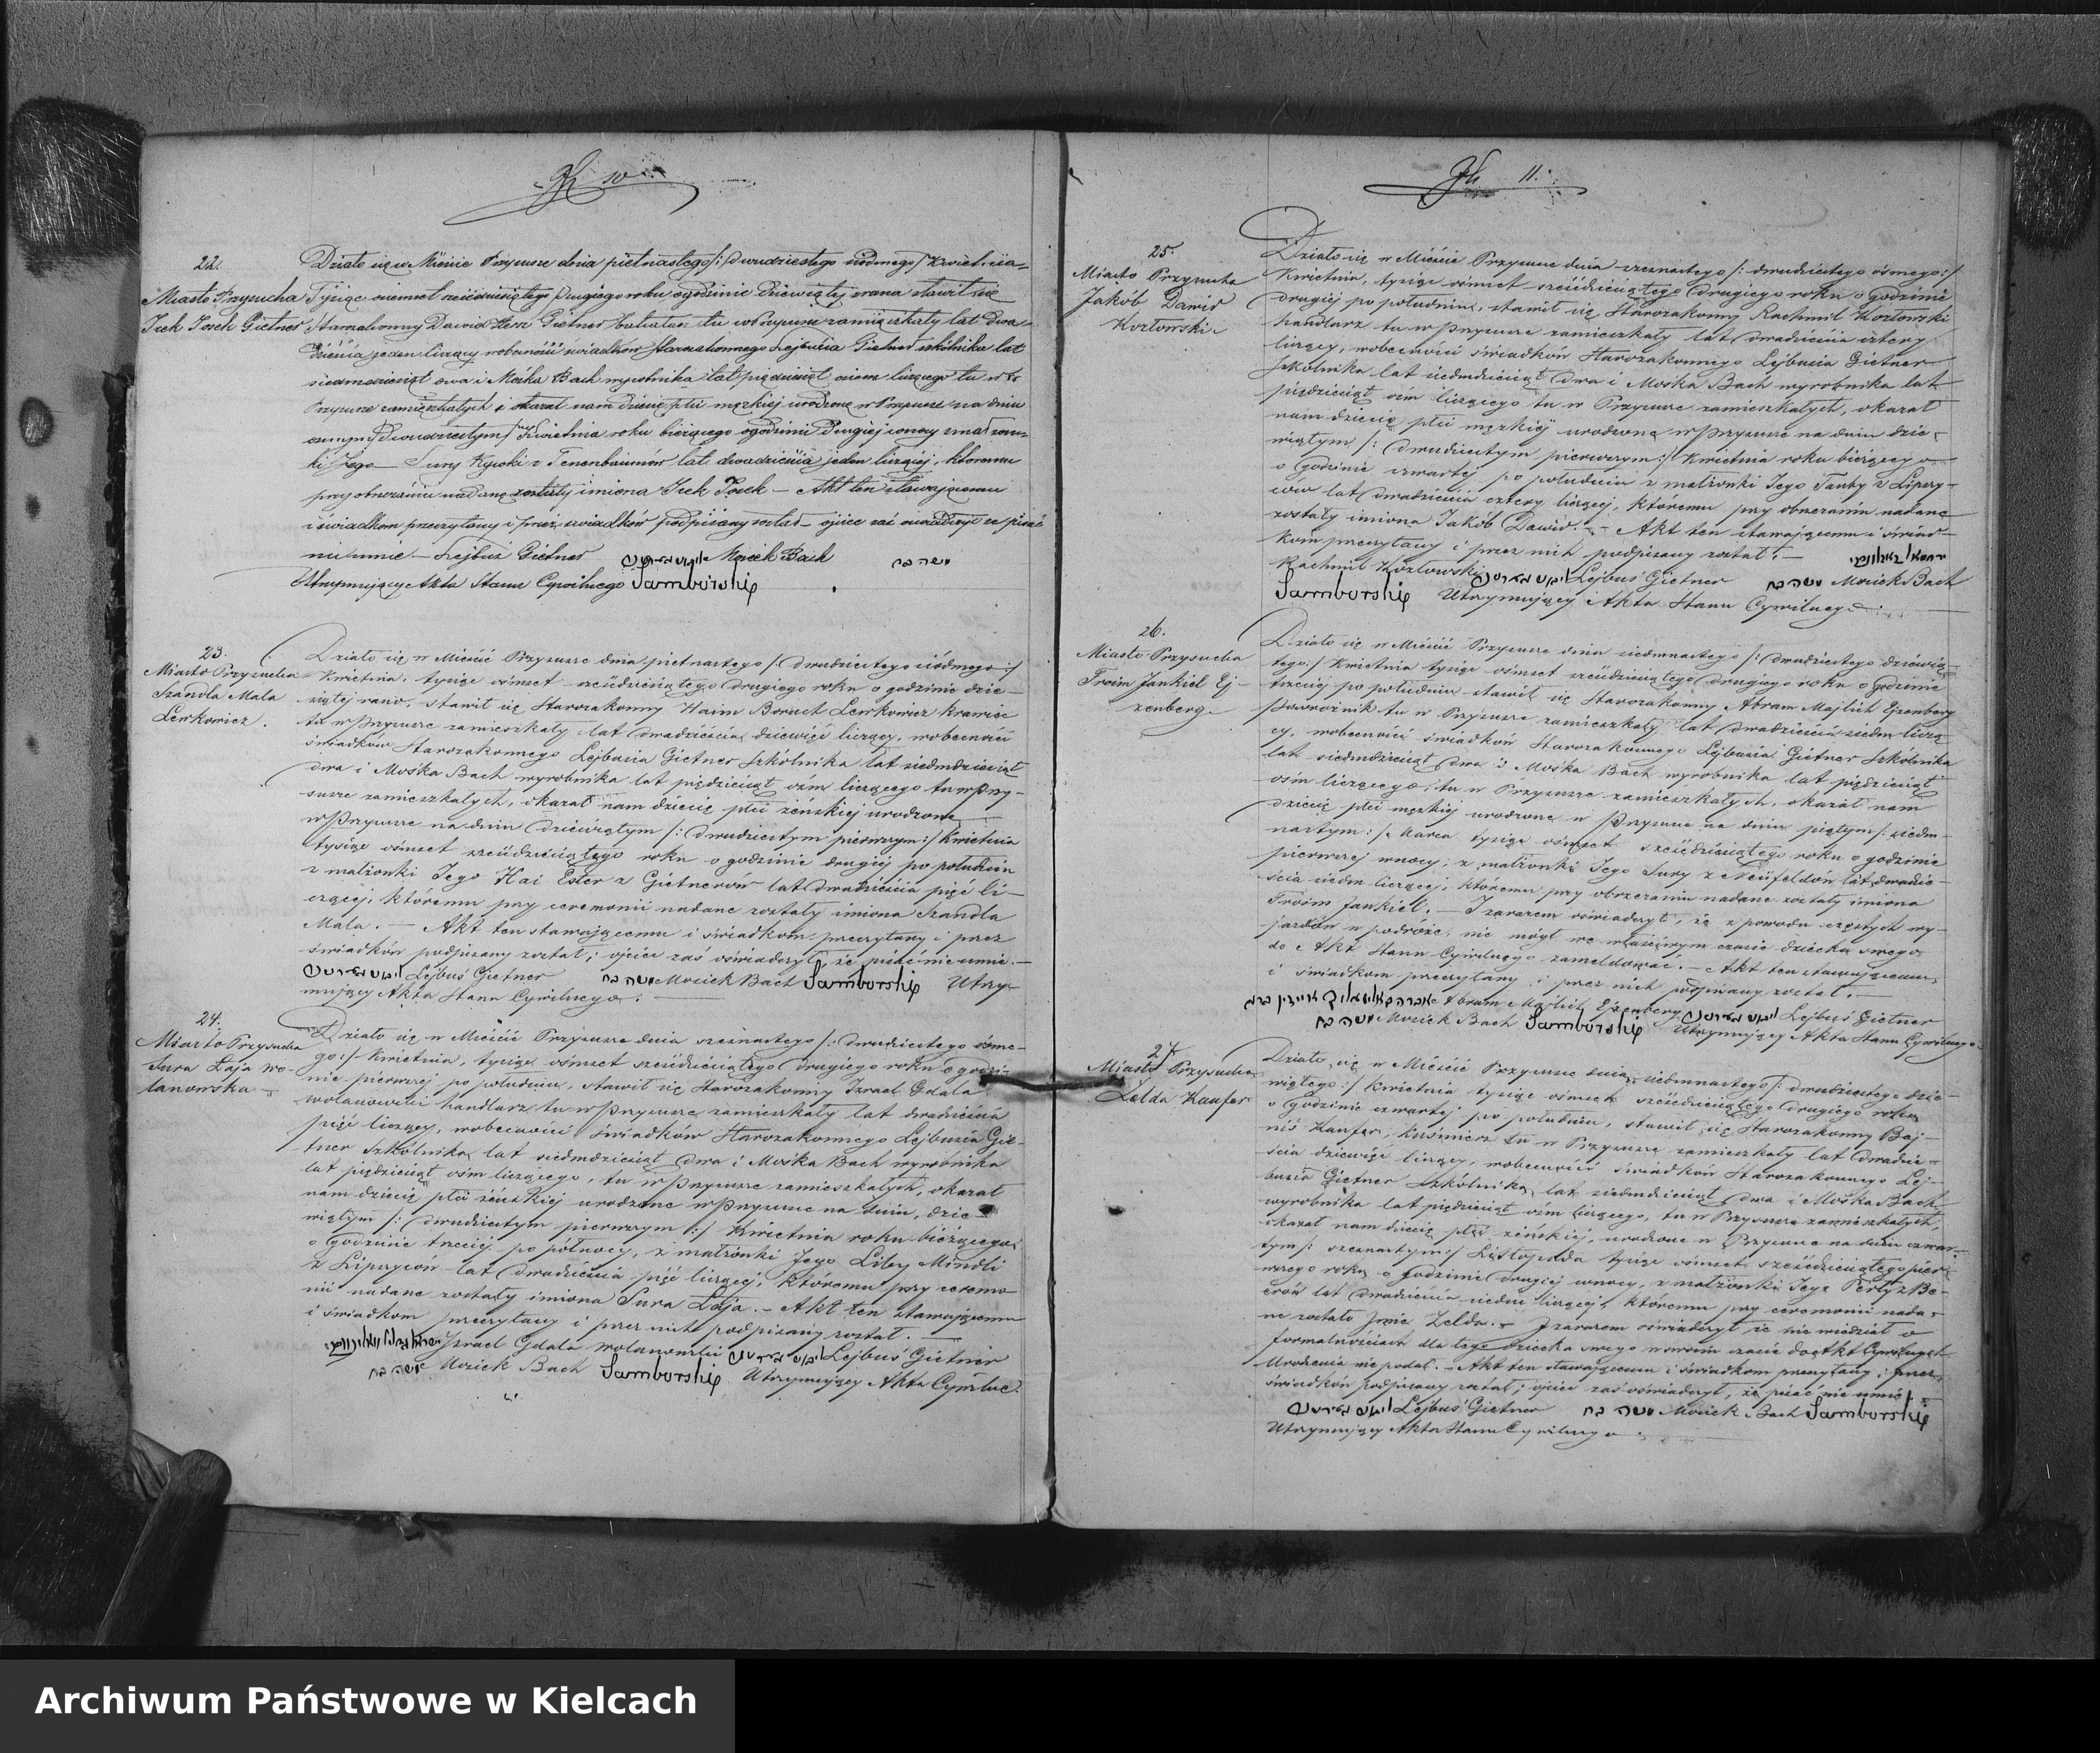 10
22.
Miasto Przysucha
Icek Josek Gietner
Działo się w Mieście Przysusze dnia piętnastego /: dwudziestego siódmego / Kwietnia
Tysiąc ośmset sześćdziesiątego drugiego roku o godzinie dziewiątej zrana stawił się
Starozakonny Dawid Gietner tu w Przysusze zamieszkały lat dwa-
dzieścia jeden liczący w obecności świadków Starozakonnego Lejbusia Gietner szkólnika lat
siedmdziesiąt dwa i Mośka Bach wyrobnika lat pięćdziesiąt ośm liczącego tu w
Przysusze zamieszkałych i okazał nam dziecię płci męzkiej urodzone w Przysusze na dniu
ósmym / dwudziestym / Kwietnia roku bieżącego o godzinie drugiej w nocy z małżon-
ki Jego Sury Kywki z Tenenbaumów lat dwadzieścia jeden liczącej, któremu
przy obrzezaniu nadane zostały imiona Icek Josek — Akt ten stawającemu
i świadkom przeczytany i przez świadków podpisany został ojciec zaś oświadczył że pisać
nie umie — Lejbuś Gietner Mosiek Bach משה בך
Utrzymujący Akta Stanu Cywilnego Samborski
23.
Miasto Przysucha
Szandla Mala
Lewkowicz.
Działo się w Mieście Przysusze dnia piętnastego /: dwudziestego siódmego :/
Kwietnia, tysiąc ośmset sześćdziesiątego drugiego roku o godzinie dzie-
siątej rano, stawił się Starozakonny Haim Boruch Lewkowicz krawiec
tu w Przysusze zamieszkały lat dwadzieścia dziewięć liczący, w obecności
świadków Starozakonnego Lejbusia Gietner Szkólnika lat siedmdziesiąt
dwa i Mośka Bach wyrobnika lat pięćdziesiąt ośm liczącego tu w Przy-
susze zamieszkałych, okazał nam dziecię płci żeńskiej urodzone
w Przysusze na dniu dziewiątym /: dwudziestym pierwszym :/ Kwietnia
tysiąc ośmset sześćdziesiątego roku o godzinie drugiej po południu
z małżonki Jego Hai Ester z Gietnerów lat dwadzieścia pięć li-
czącej, któremu przy ceremonii nadane zostały imiona Szandla
Mala. — Akt ten stawającemu i świadkom przeczytany i przez
świadków podpisany został, ojciec zaś oświadczył, że pisać nie umie. —
Lejbuś Gietner משה בך Mosiek Bach Samborski Utrzy-
mujący Akta Stanu Cywilnego.
24.
Miasto Przysucha
Sura Łaja Wo-
lanowska
Działo się w Mieście Przysusze dnia szesnastego /: dwudziestego ósme-
go :/ Kwietnia, tysiąc ośmset sześćdziesiątego drugiego roku o godzi-
nie pierwszej po południu, stawił się Starozakonny Izrael Gdala
Wolanowski handlarz tu w Przysusze zamieszkały lat dwadzieścia
pięć liczący, w obecności świadków Starozakonnego Lejbusia Gie-
tner Szkólnika lat siedmdziesiąt dwa i Mośka Bach wyrobnika
lat pięćdziesiąt ośm liczącego, tu w Przysusze zamieszkałych, okazał
nam dziecię płci żeńskiej urodzone w Przysusze na dniu, dzie-
wiątym /: dwudziestym pierwszym :/ Kwietnia roku bieżącego
o godzinie trzeciej po północy, z małżonki Jego Liby Mindli
z Lipszyców lat dwadzieścia pięć liczącej, któremu przy ceremo-
nii nadane zostały imiona Sura Łaja. — Akt ten stawającemu
i świadkom przeczytany i przez nich podpisany został. —
Izrael Gdala Wolanowski Lejbuś Gietner
משה בך Mosiek Bach Samborski Utrzymujący Akta Cywilne.
11.
25.
Miasto Przysucha
Jakób Dawid
Kozłowski
Działo się w Mieście Przysusze dnia szesnastego /: dwudziestego ósmego :/
Kwietnia, tysiąc ośmset sześćdziesiątego drugiego roku o godzinie
drugiej po południu, stawił się Starozakonny Rachmil Kozłowski
handlarz tu w Przysusze zamieszkały lat dwadzieścia cztery
liczący, w obecności świadków Starozakonnego Lejbusia Gietner
Szkólnika lat siedmdziesiąt dwa i Mośka Bach wyrobnika lat
pięćdziesiąt ośm liczącego tu w Przysusze zamieszkałych, okazał
nam dziecię płci męzkiej urodzone w Przysusze na dniu dzie-
wiątym /: dwudziestym pierwszym :/ Kwietnia roku bieżącego
o godzinie czwartej po południu z małżonki Jego Tauby z Lipszy-
ców lat dwadzieścia cztery liczącej, któremu przy obrzezaniu nadane
zostały imiona Jakób Dawid. — Akt ten stawającemu i świad-
kom przeczytany i przez nich podpisany został. —
Rachmil Kozłowski Lejbuś Gietner משה בך Mosiek Bach
Samborski Utrzymujący Akta Stanu Cywilnego.
26.
Miasto Przysucha
Froim Jankiel Ej-
zenberg
Działo się w Mieście Przysusze dnia siedmnastego /: dwudziestego dziewią-
tego :/ Kwietnia tysiąc ośmset sześćdziesiątego drugiego roku o godzinie
trzeciej po południu stawił się Starozakonny Abram Majlich Ejzenberg
Powroźnik tu w Przysusze zamieszkały lat dwadzieścia siedm liczą-
cy, w obecności świadków Starozakonnego Lejbusia Gietner Szkólnika
lat siedmdziesiąt dwa i Mośka Bach wyrobnika lat pięćdziesiąt
ośm liczącego, tu w Przysusze zamieszkałych, okazał nam
dziecię płci męzkiej urodzone w Przysusze na dniu piątym /: siedm-
nastym :/ Marca tysiąc ośmset sześćdziesiątego roku o godzinie
pierwszej w nocy, z małżonki Jego Sury z Neufeldów lat dwadzie-
ścia siedm liczącej, któremu przy obrzezaniu nadane zostały imiona
Froim Jankiel. — I zarazem oświadczył, że z powodu częstych wy-
jazdów w podróże, nie mógł we właściwym czasie dziecka swego
do Akt Stanu Cywilnego zameldować. — Akt ten stawającemu
i świadkom przeczytany i przez nich podpisany został. —
Abram Majlich Ejzenberg Lejbuś Gietner
משה בך Mosiek Bach Samborski Utrzymujący Akta Stanu Cywilnego.
27
Miasto Przysucha
Zelda Kaufer
Działo się w Mieście Przysusze dnia siedmnastego /: dwudziestego dzie-
wiątego :/ Kwietnia tysiąc ośmset sześćdziesiątego drugiego roku
o godzinie czwartej po południu, stawił się Starozakonny Baj-
niś Kaufer, kuśnierz tu w Przysusze zamieszkały lat dwadzie-
ścia dziewięć liczący, w obecności świadków Starozakonnego Lej-
busia Gietner Szkólnika, lat siedmdziesiąt dwa i Mośka Bach
wyrobnika lat pięćdziesiąt ośm liczącego, tu w Przysusze zamieszkałych,
okazał nam dziecię płci żeńskiej, urodzone w Przysusze na dniu czwar-
tym /: szesnastym :/ Listopada tysiąc ośmset sześćdziesiątego pier-
wszego roku o godzinie drugiej w nocy, z małżonki Jego Perły z Be-
rów lat dwadzieścia siedm liczącej, któremu przy ceremonii nada-
ne zostało Imie Zelda. — I zarazem oświadczył że nie wiedział o
formalnościach dla tego dziecka swego w swoim czasie do Akt Cywilnych
Urodzenia nie podał. — Akt ten stawającemu i świadkom przeczytany i przez
świadków podpisany został, ojciec zaś oświadczył, że pisać nie umie
Lejbuś Gietner משה בך Mosiek Bach Samborski
Utrzymujący Akta Stanu Cywilnego.
Archiwum Państwowe w Kielcach